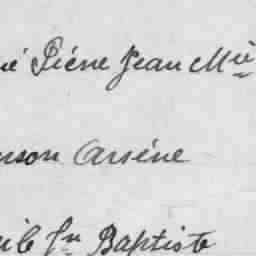 né Piérre Jean Mie
nson Arsène
Jn Baptiste